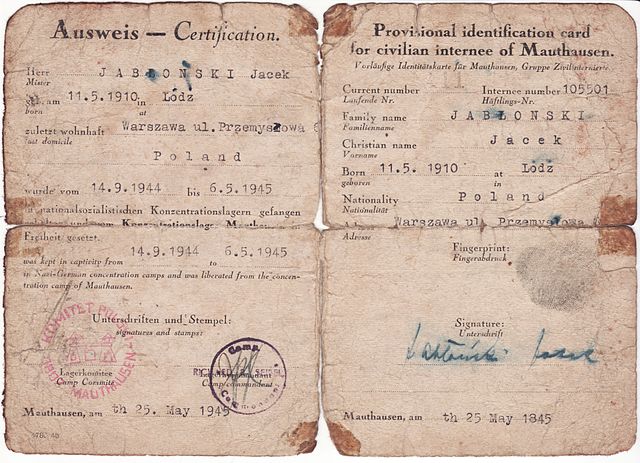 Ausweis — Certification.
Herr JABŁONSKI Jacek
Mister
geb. am 11.5.1910 in Łodz
born at
zuletzt wohnhaft Warszawa ul. Przemysłowa 6
last domicile
Poland
wurde vom 14.9.1944 bis 6.5.1945
in nationalsozialistischen Konzentrationslagern gefangen
Freiheit gesetzt.
was kept in captivity from 14.9.1944 to 6.5.1945
in Nazi-German concentration camps and was liberated from the concen-
tration camp of Mauthausen.
Unterschriften und Stempel:
signatures and stamps:
KOMITET
MAUTHAUSEN
Lagerkomitee
Camp Comitee
Camp
Commandant
Camp commandant
Mauthausen, am th 25. May 1945
Provisional identification card
for civilian internee of Mauthausen.
Vorläufige Identitätskarte für Mauthausen, Gruppe Zivilinternierte.
Current number Internee number 105501
Laufende Nr. Häftlings-Nr.
Family name JABŁONSKI
Familienname
Christian name Jacek
Vorname
Born 11.5. 1910 at Łodz
geboren in
Nationality Poland
Nationalität
Warszawa ul. Przemysłowa 6
Adresse
Fingerprint:
Fingerabdruck
Signature:
Unterschrift
Jabłoński Jacek
Mauthausen, am th 25 May 1845